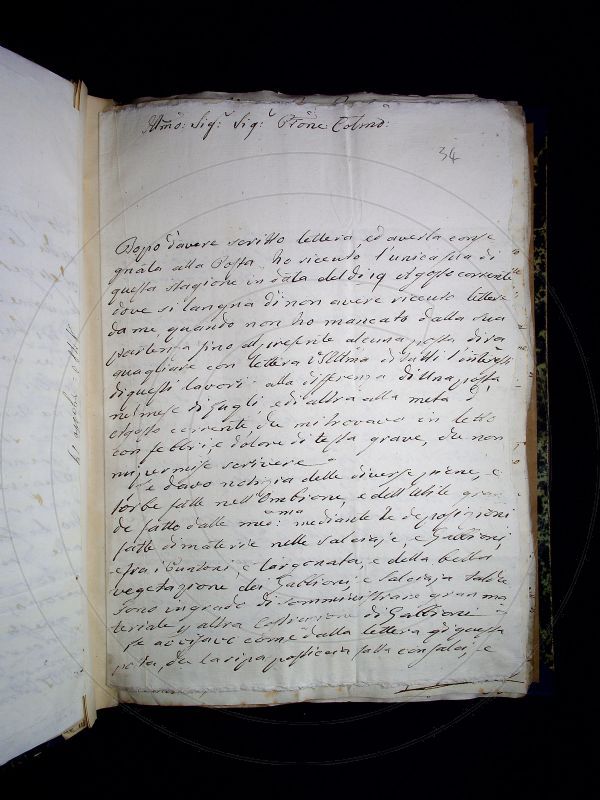 Illmo: Sigr. Sigr. Prone: Colmo:
34
Dopo d'avere scritto lettera, ed averla conse
gnata alla Posta ho ricevuto l'unica sua di
questa stagione in data del dì 19 Agosto corrente
dove si langna di non avere ricevuto lettere
da me, quando non ho mancato dalla sua
partenza fino al presente alcuna posta di ra
guagliare con lettera VSIllma di tutti l'interessi
di questi lavori alla differenza di una posta
nel mese di Lugli, e di altra alla metà d'
Agosto corrente che mi trovavo in letto
con febbri, e dolore di testa grave, che non
mi permise scrivere
Le davo notizia delle diverse piene, e
torbe fatte nell'Ombrone, e dell'Utile gran
de fatto dalle mede:ma mediante le deposizioni
fatte di materie nelle Salciaje, e Gabbioni,
e fra i Puntoni, e Largonata, e della bella
vegetazione dei Gabbioni, e Salciaja
sono in grado di somministrare gran ma
teriale altra Costruzione di Gabbioni
Le avisavo come dalla lettera di questa
posta, che la ripa posticcia fatta con salci, e